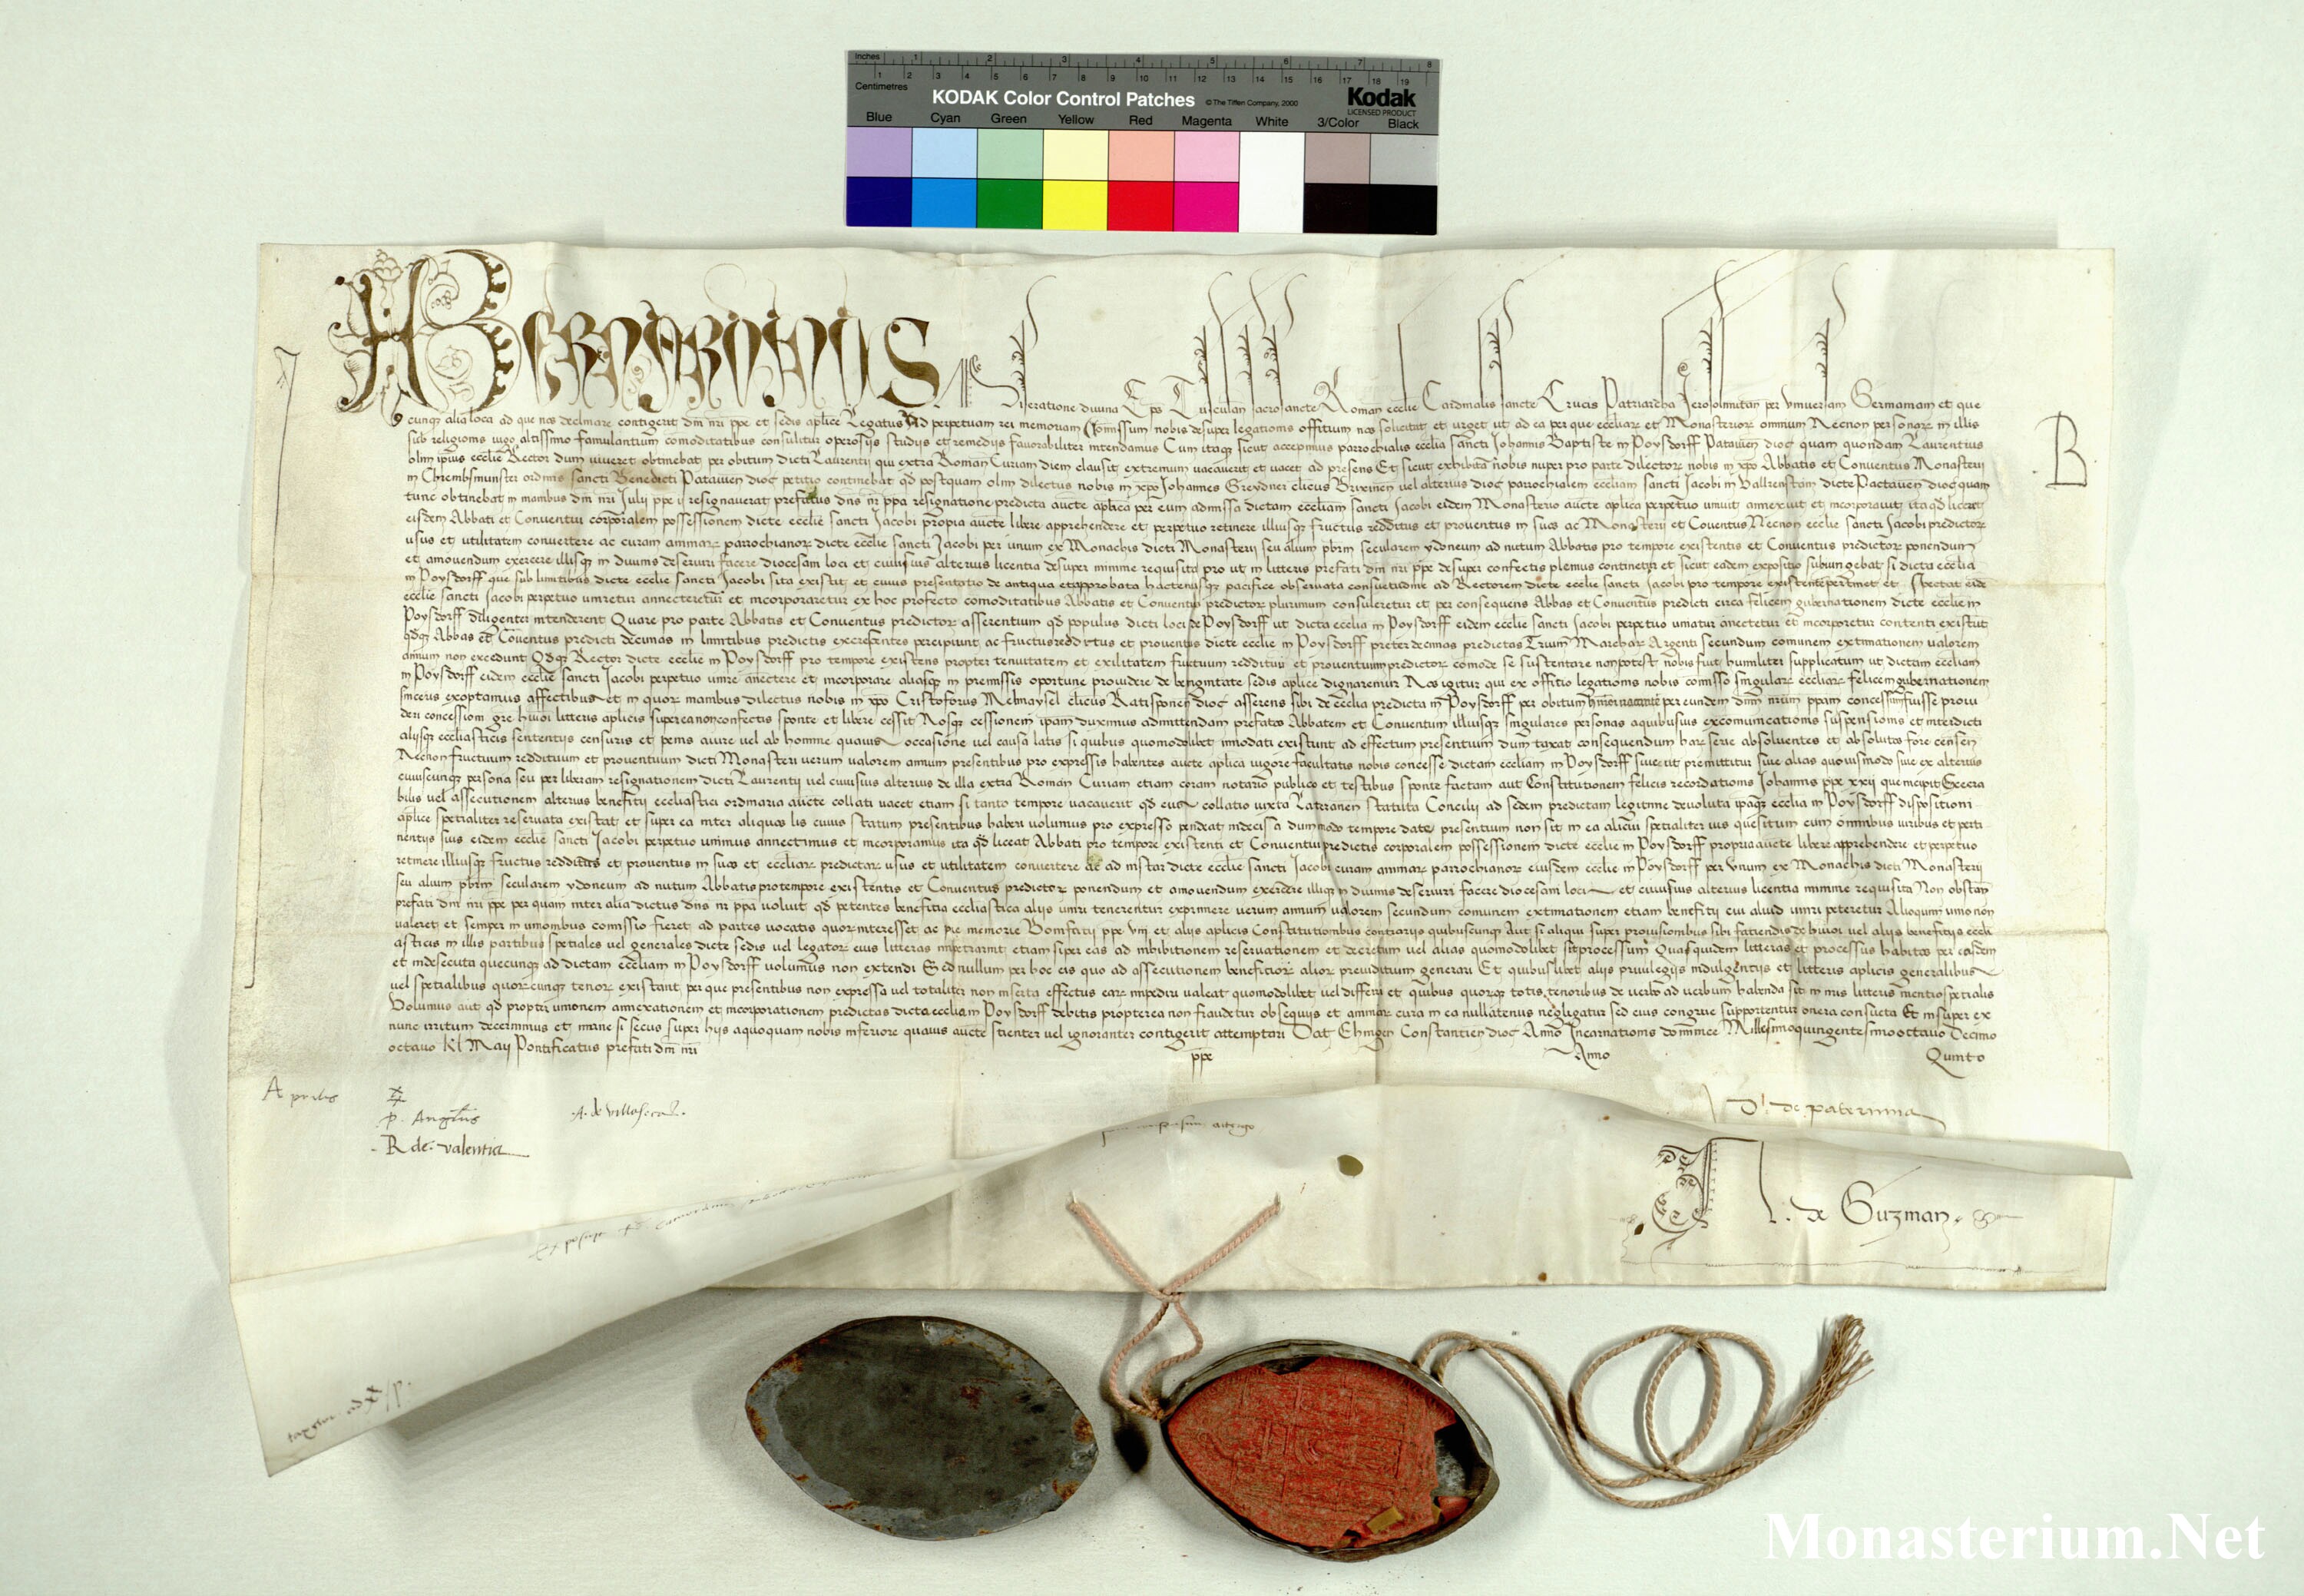 Inches 1 2 3 4 5 6 7 8
Centimetres 1 2 3 4 5 6 7 8 9 10 11 12 13 14 15 16 17 18 19
KODAK Color Control Patches © The Tiffen Company, 2000 Kodak
LICENSED PRODUCT
Blue Cyan Green Yellow Red Magenta White 3/Color Black
Bernardinus Miseratione diuina Eps Tusculan sacrosancte Roman ecclie Cardinalis sancte Crucis Patriarcha Jerosolimitan per vniuersam Germaniam et que
cunq alia loca ad que nos declinare contigerit dni nri ppe et sedis aplice Legatus Ad perpetuam rei memoriam Comissum nobis desuper legationis offitium nos solicitat et urget ut ad ea per que eccliar et Monasterior omnium Necnon personar in illis
sub religionis iugo altissimo famulantium comoditatibus consulitur operosijs studijs et remedijs fauorabiliter intendamus Cum itaqz sicut accepimus parrochialis ecclia sancti Johannis Baptiste in Poysdorff Patauien dioc quam quondam Laurentius
olim ipius ecclie Rector dum uiueret obtinebat per obitum dicti Laurentij qui extra Roman Curiam diem clausit extremum uacauerit et uacet ad presens Et sicut exhibita nobis nuper pro parte dilector nobis in xpo Abbatis et Conuentus Monasterij
in Chrembsmunster ordinis sancti Benedicti Patauien dioc petitio continebat qd postquam olim dilectus nobis in xpo Johannes Greudner clicus Brixinen uel alterius dioc parrochialem eccliam sancti Jacobi in Vallenstain dicte Patauien dioc quam
tunc obtinebat in manibus dni nri Julij ppe ij resignauerat prefatus dns nr ppa resignatione predicta aucte aplica per eum admissa dictam eccliam sancti Jacobi eidem Monasterio aucte aplica perpetuo uniuit annexuit et incorporauit ita qd liceret
eisdem Abbati et Conuentui corporalem possessionem dicte ecclie sancti Jacobi propria aucte libere apprehendere et perpetuo retinere illiusqz fructus redditus et prouentus in suos ac Monasterij et Couentus Necnon ecclie sancti Jacobi predictor
usus et utilitatem conuertere ac curam animar parrochianor dicte ecclie sancti Jacobi per unum ex Monachis dicti Monasterij seu alium pbrm secularem ydoneum ad nutum Abbatis pro tempore existentis et Conuentus predictor ponendum
et amouendum exercere illisqz in diuinis deseruiri facere diocesani loci et cuiusuis alterius licentia desuper minime requisita pro ut in litteris prefati dni nri ppe desuper confectis plenius continetur et sicut eadem expositio subiungebat si dicta ecclia
in Poysdorff que sub limitibus dicte ecclie sancti Jacobi sita existit et cuius presentatio de antiqua et approbata hactenusqz pacifice obseruata consuetudine ad Rectorem dicte ecclie sancti Jacobi pro tempore existentem pertinet et spectat eide
ecclie sancti Jacobi perpetuo uniretur annecteretur et incorporaretur ex hoc profecto comoditatibus Abbatis et Conuentus predictor plurimum consuleretur et per consequens Abbas et Conuentus predicti circa felicem gubernationem dicte ecclie in
Poysdorff diligenter intenderent Quare pro parte Abbatis et Conuentus predictor asserentium qd populus dicti loci de Poysdorff ut dicta ecclia in Poysdorff eidem ecclie sancti Jacobi perpetuo uniatur anectetur et incorporetur contenti existut
qdqz Abbas et Conuentus predicti decimas in limitibus predictis excrescentes percipiunt ac fructus redditus et prouentus dicte ecclie in Poysdorff preter decimas predictas Trium Marchar Argenti secundum comunem extimationem ualorem
annuum non excedunt Qdqz Rector dicte ecclie in Poysdorff pro tempore existens propter tenuitatem et exilitatem fructuum reddituu et prouentuum predictor comode se sustentare non potest nobis fuit humiliter supplicatum ut dictam eccliam
in Poysdorff eidem ecclie sancti Jacobi perpetuo unire anectere et incorporare aliasqz in premissis oportune prouidere de benignitate sedis aplice dignaremur Nos igitur qui ex offitio legationis nobis comisso singular eccliar felicem gubernationem
sinceris exoptamus affectibus et in quor manibus dilectus nobis in xpo Cristoforus Melmaysel clicus Ratisponen dioc asserens sibi de ecclia predicta in Poysdorff per obitum per eundem dnm nrum ppam concessum fuisse proui
deri concessioni gre huiusmodi litteris aplicis super ea non confectis sponte et libere cessit Nosqz cessionem ipam duximus admittendam prefatos Abbatem et Conuentum illiusqz singulares personas a quibusuis excomunicationis suspensionis et interdicti
alijsqz ecclesiasticis sententijs censuris et penis a iure uel ab homine quauis occasione uel causa latis si quibus quomodolibet innodati existunt ad effectum presentium dum taxat consequendum har serie absoluentes et absolutos fore censen
Necnon fructuum reddituum et prouentuum dicti Monasterij uerum ualorem annuum presentibus pro expressis habentes aucte aplica uigore facultatis nobis concesse dictam eccliam in Poysdorff siue ut premittitur siue alias quouismodo siue ex alterius
cuiuscunqz persona seu per liberam resignationem dicti Laurentij uel cuiusuis alterius de illa extra Roman Curiam etiam coram notario publico et testibus sponte factam aut Constitutionem felicis recordationis Johannis ppe xxij que incipit Execra
bilis uel assecutionem alterius benefitij ecclesiastici ordinaria aucte collati uacet etiam si tanto tempore uacauerit qd eius collatio iuxta Lateranen statuta Concilij ad sedem predictam legitime deuoluta ipaqz ecclia in Poysdorff dispositioni
aplice spetialiter reseruata existat et super ea inter aliquos lis cuius statum presentibus haberi uolumus pro expresso pendeat indecisa dummodo tempore date presentium non sit in ea alicui spetialiter ius quesitum cum omnibus iuribus et perti
nentijs suis eidem ecclie sancti Jacobi perpetuo unimus annectimus et incorporamus ita qd liceat Abbati pro tempore existenti et Conuentui predictis corporalem possessionem dicte ecclie in Poysdorff propria aucte libere apprehendere et perpetuo
retinere illiusqz fructus redditus et prouentus in suos et eccliar predictar usus et utilitatem conuertere ac ad instar dicte ecclie sancti Jacobi curam animar parrochianor eiusdem ecclie in Poysdorff per Vnum ex Monachis dicti Monasterij
seu alium pbrm secularem ydoneum ad nutum Abbatis pro tempore existentis et Conuentus predictor ponendum et amouendum exercere illiqz in diuinis deseruiri facere diocesani loci et cuiusuis alterius licentia minime requisita Non obstan
prefati dni nri ppe per quam inter alia dictus dns nr ppa uoluit qd petentes benefitia ecclesiastica alijs uniri tenerentur exprimere uerum annuum ualorem secundum comunem extimationem etiam benefitij cui aliud uniri peteretur Alioquin unio non
ualeret et semper in unionibus comissio fieret ad partes uocatis quor interesset ac pie memorie Bonifatij ppe viij et alijs aplicis Constitutionibus contrarijs quibuscunqz Aut si aliqui super prouisionibus sibi fatiendis de huiusmodi uel alijs benefitijs eccli
asticis in illis partibus spetiales uel generales dicte sedis uel legator eius litteras impetrarint etiam si per eas ad inhibitionem reseruationem et decretum uel alias quomodolibet sit processum Quasquidem litteras et processus habitos per easdem
et inde secuta quecunqz ad dictam eccliam in Poysdorff uolumus non extendi Sed nullum per hoc eis quo ad assecutionem benefitior alior preiuditium generari Et quibuslibet alijs priuilegijs indulgentijs et litteris aplicis generalibus
uel spetialibus quorcunqz tenor existant per que presentibus non expressa uel totaliter non inserta effectus ear impediri ualeat quomodolibet uel differri et quibus quorqz totis tenoribus de uerbo ad uerbum habenda sit in nris litteris mentio spetialis
Volumus aut qd propter unionem annexationem et incorporationem predictas dicta ecclia in Poysdorff debitis propterea non fraudetur obsequijs et animar cura in ea nullatenus negligatur sed eius congrue supportentur onera consueta Et insuper ex
nunc irritum decernimus et inane si secus super hijs a quoquam nobis inferiore quauis aucte scienter uel ignoranter contigerit attemptari Dat Ehingen Constantien dioc Anno Incarnationis dominice Millesimoquingentesimooctauo Decimo
octauo Kl Maij Pontificatus prefati dni nri ppe Anno Quinto
B
Aprilis
P. Angelus
A. de villaseca
R de valentia
D. de paternina
L. de Guzman
Monasterium.Net